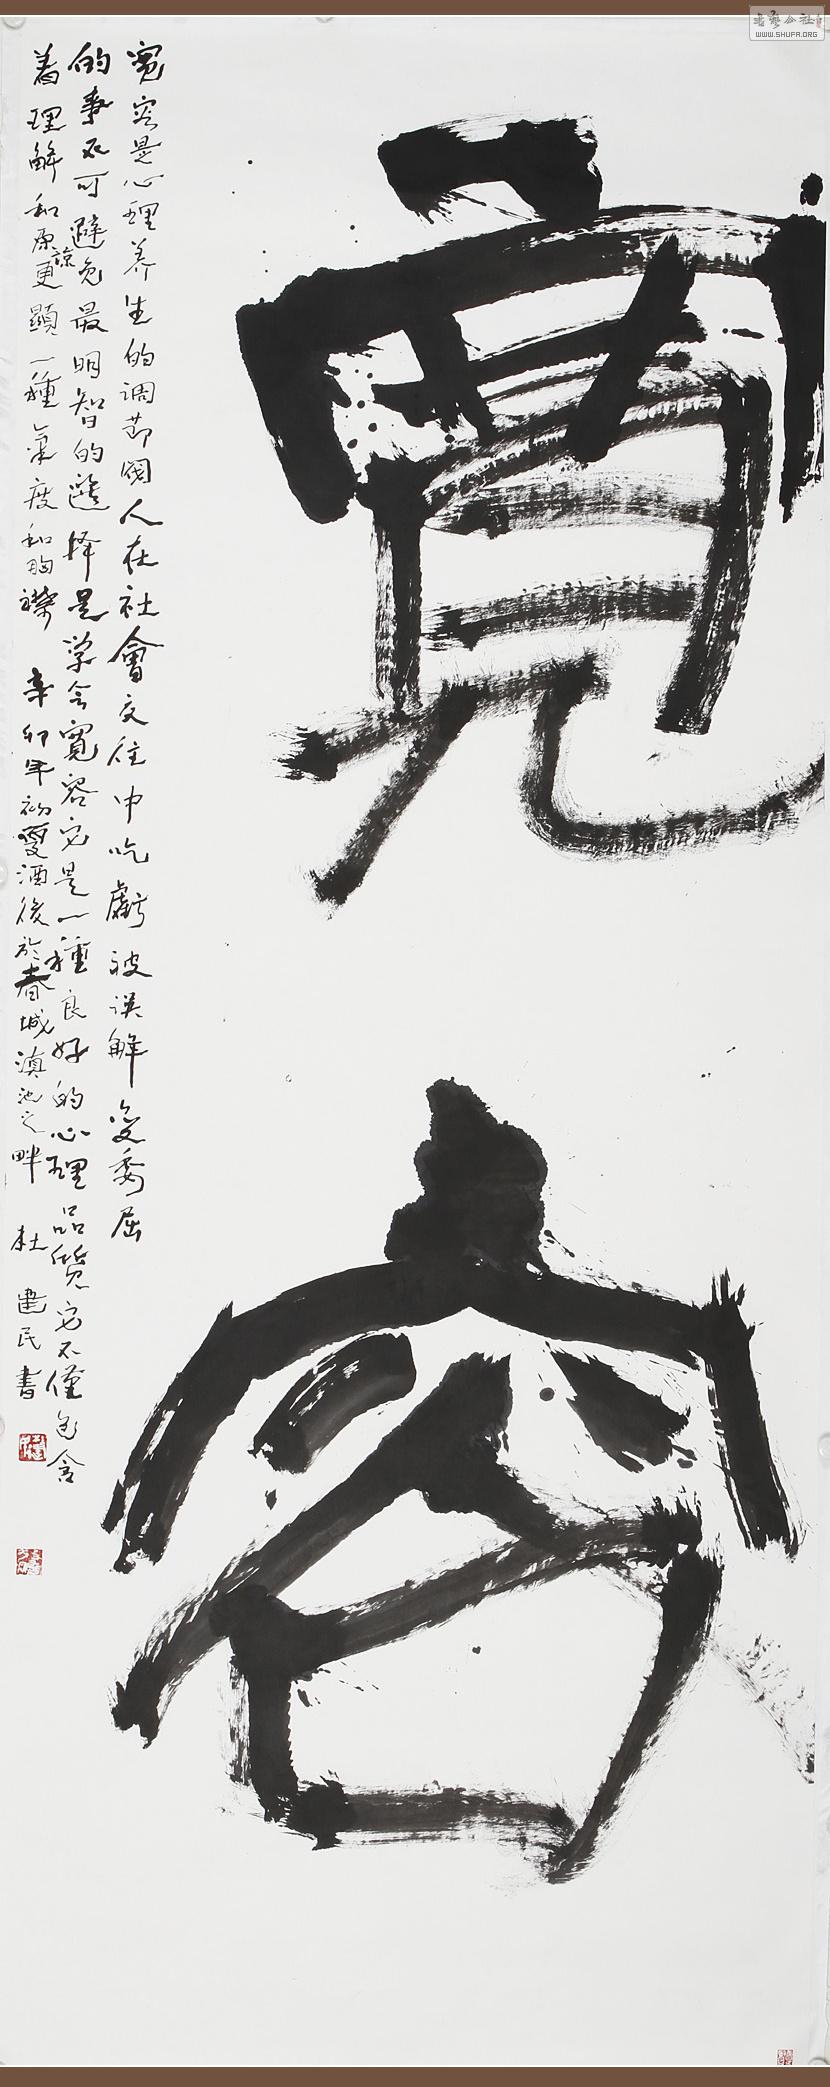 寬容
寬容是心理养生的调节阀人在社會交往中吃虧被误解受委屈
的事不可避免最明智的選择是学会寬容它是一種良好的心理品質它不僅包含
着理解和原諒更顯一種氣度和胸襟 辛卯年初夏酒後於春城滇池之畔 杜建民書
書藝公社
WWW.SHUFA.ORG